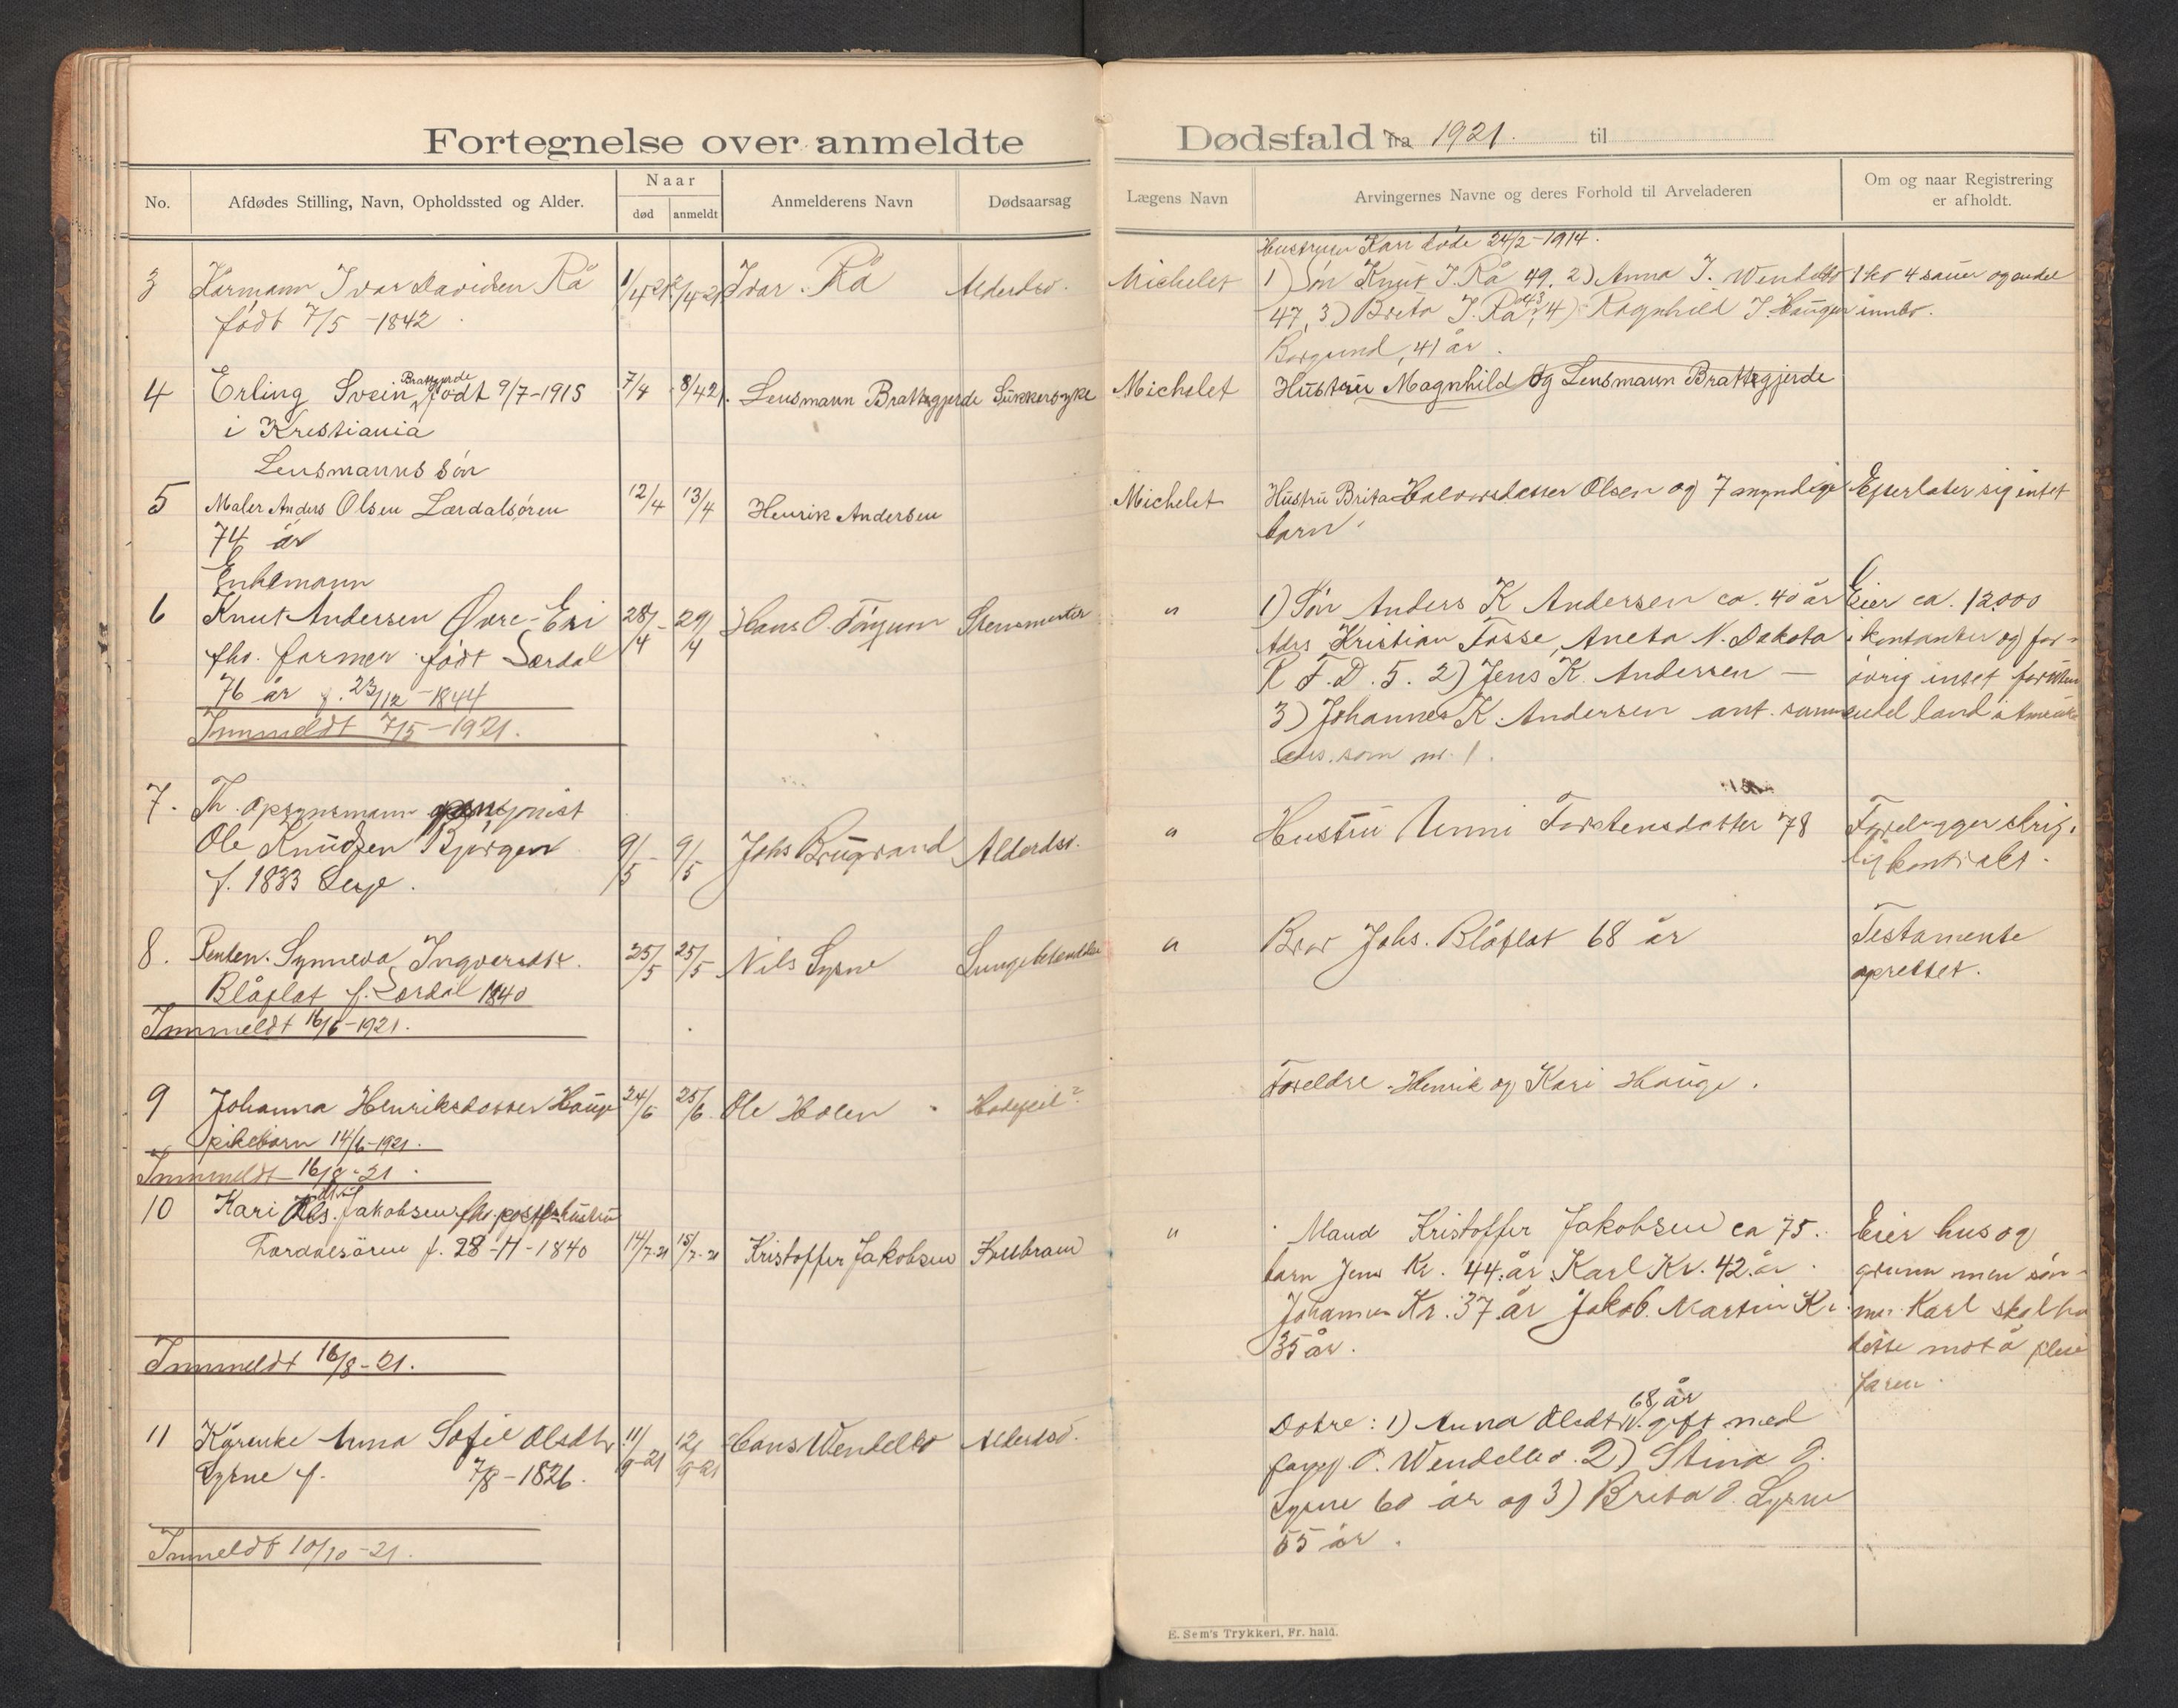 Fortegnelse over anmeldte Dødsfald fra 1921. til
No.
Afdødes Stilling, Navn, Opholdssted og Alder.
Naar
død
anmeldt
Anmelderens Navn
Dødsaarsag
Lægens Navn
Arvingernes Navne og deres Forhold til Arveladeren
Om og naar Registrering
er afholdt.
Hustruen Kari døde 24/2-1914.
3 Kårmann Ivar Davidsen Rå 1/4 21 2/4-21 Ivar Rå Alderdso. Michelet 1) Søn Knut I. Rå 49. 2) Anna I. Wendelbo 1 ko 4 sauer og endel
født 7/5-1842. 47, 3) Brita I. Rå 43, 4) Ragnhild I. Haugen innbo.
Borgund, 41 år.
4 Erling Svein Brattegjerde født 9/7-1915 7/4 8/4 21. Lensmann Brattegjerde Sukkersyke Michelet Hustru Magnhild og Lensmann Brattegjerde
i Kristiania
Lensmanns søn
5 Maler Anders Olsen Lærdalsøren 12/4 13/4 Henrik Andersen Michelet Hustru Brita Halvorsdatter Olsen og 7 myndige Efterlater sig intet
74 år barn.
Enkemann
6 Knut Andersen Øvre-Eri 28/4 - 29/4 Hans O. Tønjum " 1) Søn Anders K Andersen ca. 40 år Eier ca. 12000
fhv. farmer født Lærdal Adrs Kristian Fosse, Aneta N. Dakota i kontanter og for-
76 år f. 23/12-1844 R F. D. 5. 2) Jens K. Andersen — øvrig intet
Innmeldt 7/5-1921. 3) Johannes K. Andersen ant. samme endel land i Amerika
adrs. som nr. 1.
7. Fh. opsynsmann
Ole Knudsen Bjørgen 9/5 - 9/5 Johs Brugrand Alderdso. " Hustru Unni Torstensdatter 78 Foreligger skrift-
f. 1833 lig kontrakt.
8. Renten. Synneva Ingversdtr. 25/5 25/5 Nils Lysne Lungebetendelse " Bror Johs. Blåflat 68 år Testamente
Blåflat f. Lærdal 1840 oprettet.
Innmeldt 16/6-1921.
9 Johanna Henriksdatter Hauge 24/6 25/6. Ole Holen Hodefeil? Foreldre Henrik og Kari Hauge.
pikebarn 14/6-1921.
Innmeldt 16/8-21.
10 Kari Jakobsen fhv. hustru
Lærdalsøren f. 28-11-1840 14/7-21 15/7-21 Kristoffer Jakobsen Koldbrann " Mand Kristoffer Jakobsen ca 75. Eier hus og
barn Jens Kr. 44 år Karl Kr. 42 år. grunn men søn-
Johannes Kr. 37 år Jakob Martin Kr. nen Karl skal ha
35 år. dette mot å pleie
faren.
Innmeldt 16/8-21.
11 Kårenke Anna Sofie Olsdtr 11/9-21 12/9-21 Hans Wendelbo Alderdso. Døtre: 1) Anna Olsdtr W. 68 år gift med
Lysne f. 7/8-1826. O. Wendelbo. 2) Stina O.
Lysne 60 år og 3) Brita O. Lysne
55 år.
Innmeldt 10/10-21.
E. Sem's Trykkeri, Fr. hald.